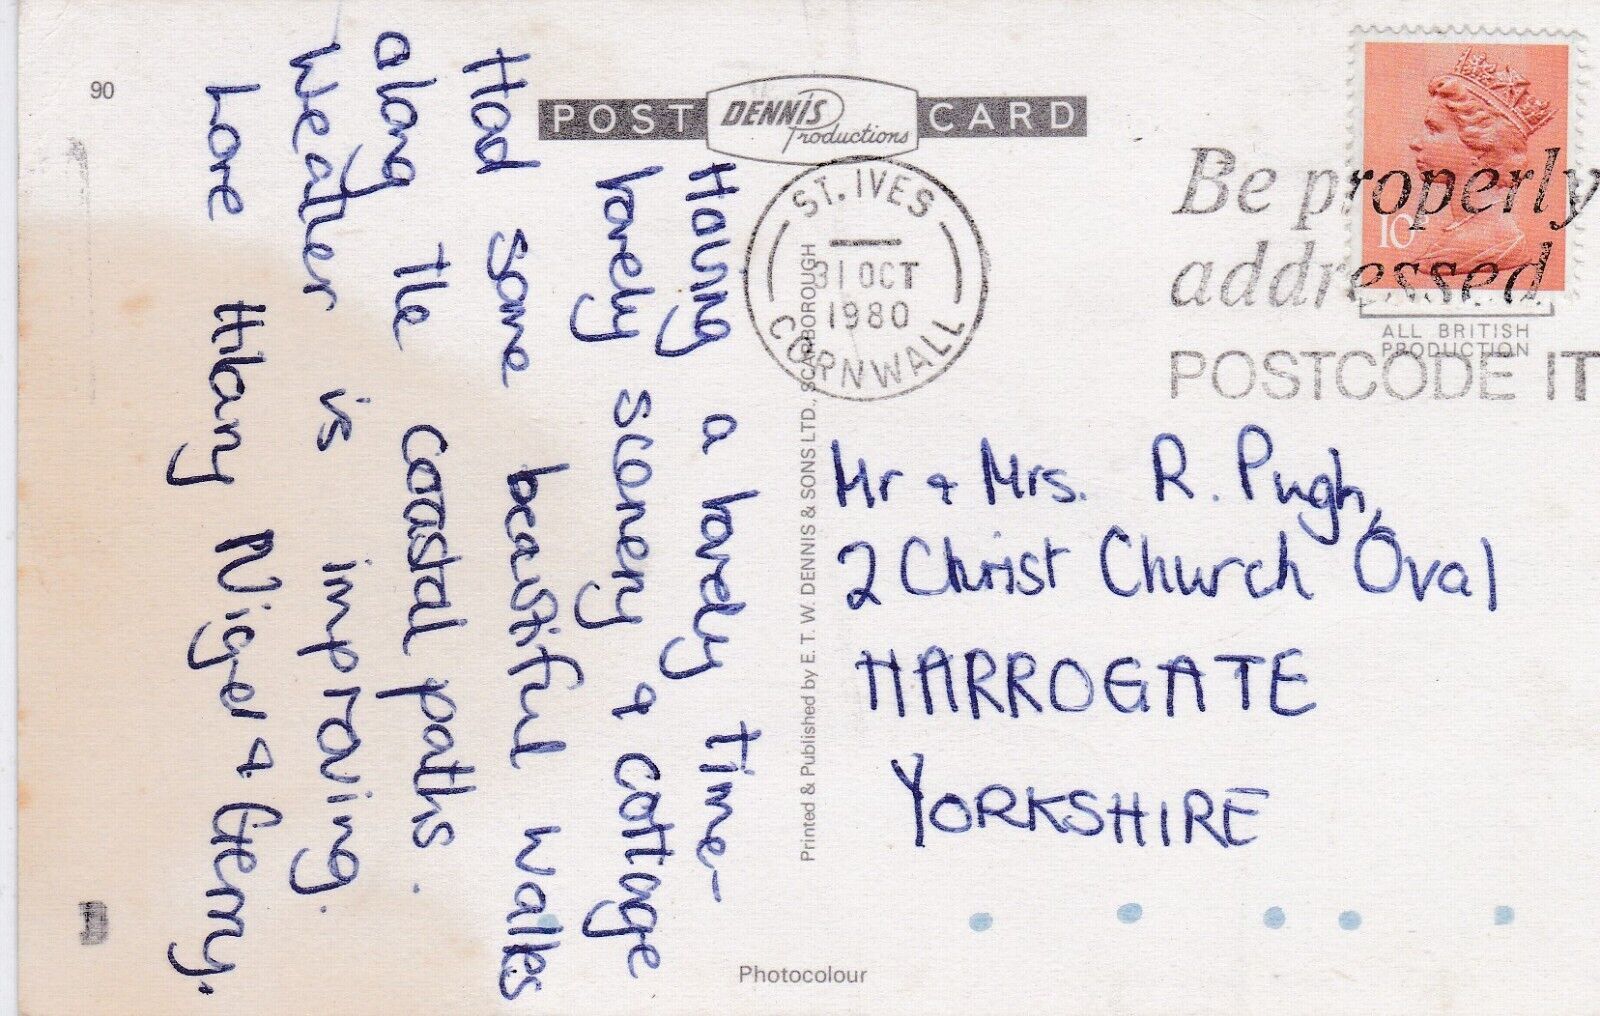 90
POST DENNIS Productions CARD
Having a lovely time-
lovely scenery & cottage
Had some beautiful walks
along the coastal paths.
Weather is improving.
Love Hilary Nigel & Gerry.
Printed & Published by E. T. W. DENNIS & SONS LTD., SCARBOROUGH
ST. IVES
31 OCT
1980
CORNWALL
Be properly
addressed
POSTCODE IT
10
ALL BRITISH
PRODUCTION
Mr & Mrs. R. Pugh,
2 Christ Church Oval
HARROGATE
YORKSHIRE
Photocolour